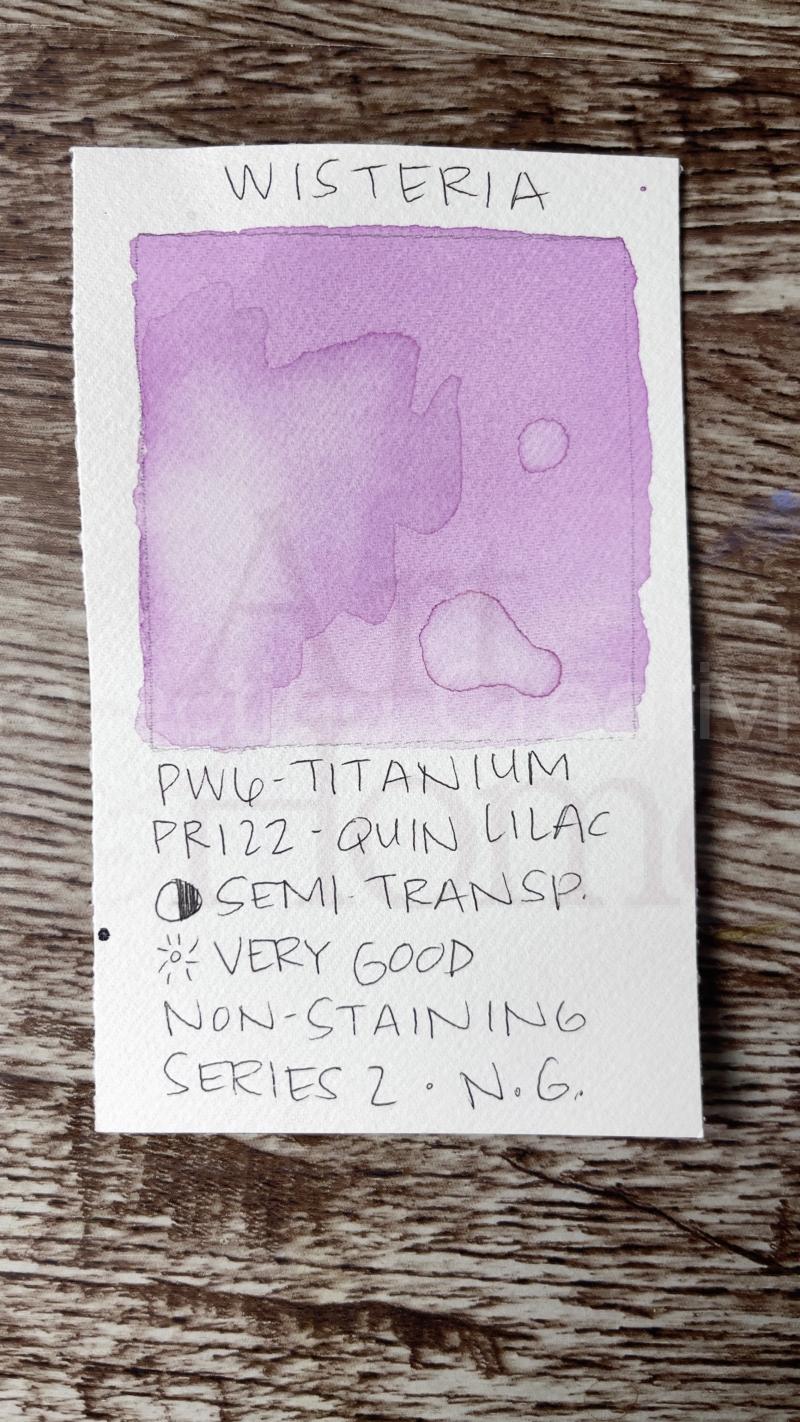 WISTERIA
PW6-TITANIUM
PR122-QUIN LILAC
SEMI-TRANSP.
VERY GOOD
NON-STAINING
SERIES 2 · N.G.
Art
Home